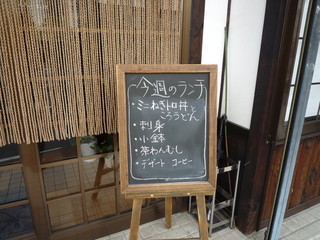 今週のランチ
・ミニねぎトロ丼と
ころうどん
・刺身
・小鉢
・茶わんむし
・デザート コーヒー